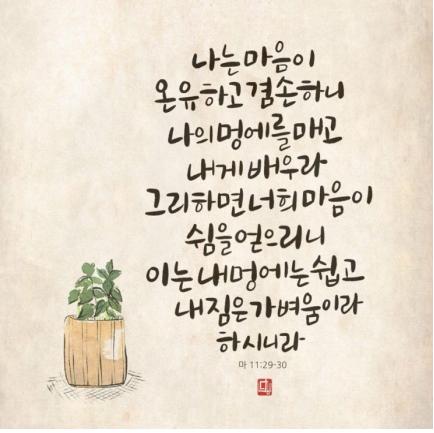 나는 마음이
온유하고 겸손하니
나의 멍에를 매고
내게 배우라
그리하면 너희 마음이
쉼을 얻으리니
이는 내 멍에는 쉽고
내 짐은 가벼움이라
하시니라
마 11:29-30